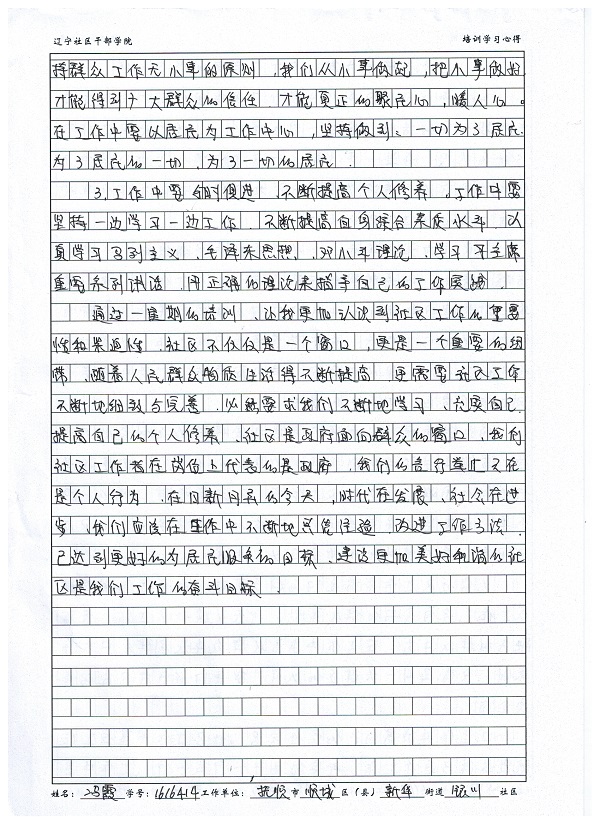 辽宁社区干部学院 培训学习心得
持群众工作无小事的原则，我们从小事做起，把小事做好
才能得到广大群众的信任，才能真正的聚民心，暖人心。
在工作中要以居民为工作中心，坚持做到：一切为了居民，
为了居民的一切，为了一切的居民。
3、工作中要与时俱进，不断提高个人修养，工作中要
坚持一边学习一边工作，不断提高自身综合素质水平，认
真学习马列主义、毛泽东思想、邓小平理论，学习习主席
重要系列讲话，用正确的理论来指导自己的工作实践。
通过一星期的培训，让我更加认识到社区工作的重要
性和紧迫性，社区不仅仅是一个窗口，更是一个重要的纽
带，随着人民群众物质生活得不断提高，更需要社区工作
不断地细致与完善，必然要求我们不断地学习，充实自己
提高自己的个人修养，社区是政府面向群众的窗口，我们
社区工作者在岗位上代表的是政府，我们的言行举止不在
是个人行为，在日新月异的今天，时代在发展，社会在进
步，我们应该在工作中不断地总结经验，改进工作方法，
已达到更好的为居民服务的目标，建设更加美好和谐的社
区是我们工作的奋斗目标。
姓名：冯霞 学号：1616414 工作单位：抚顺 市 顺城 区（县） 新华 街道 银川 社区